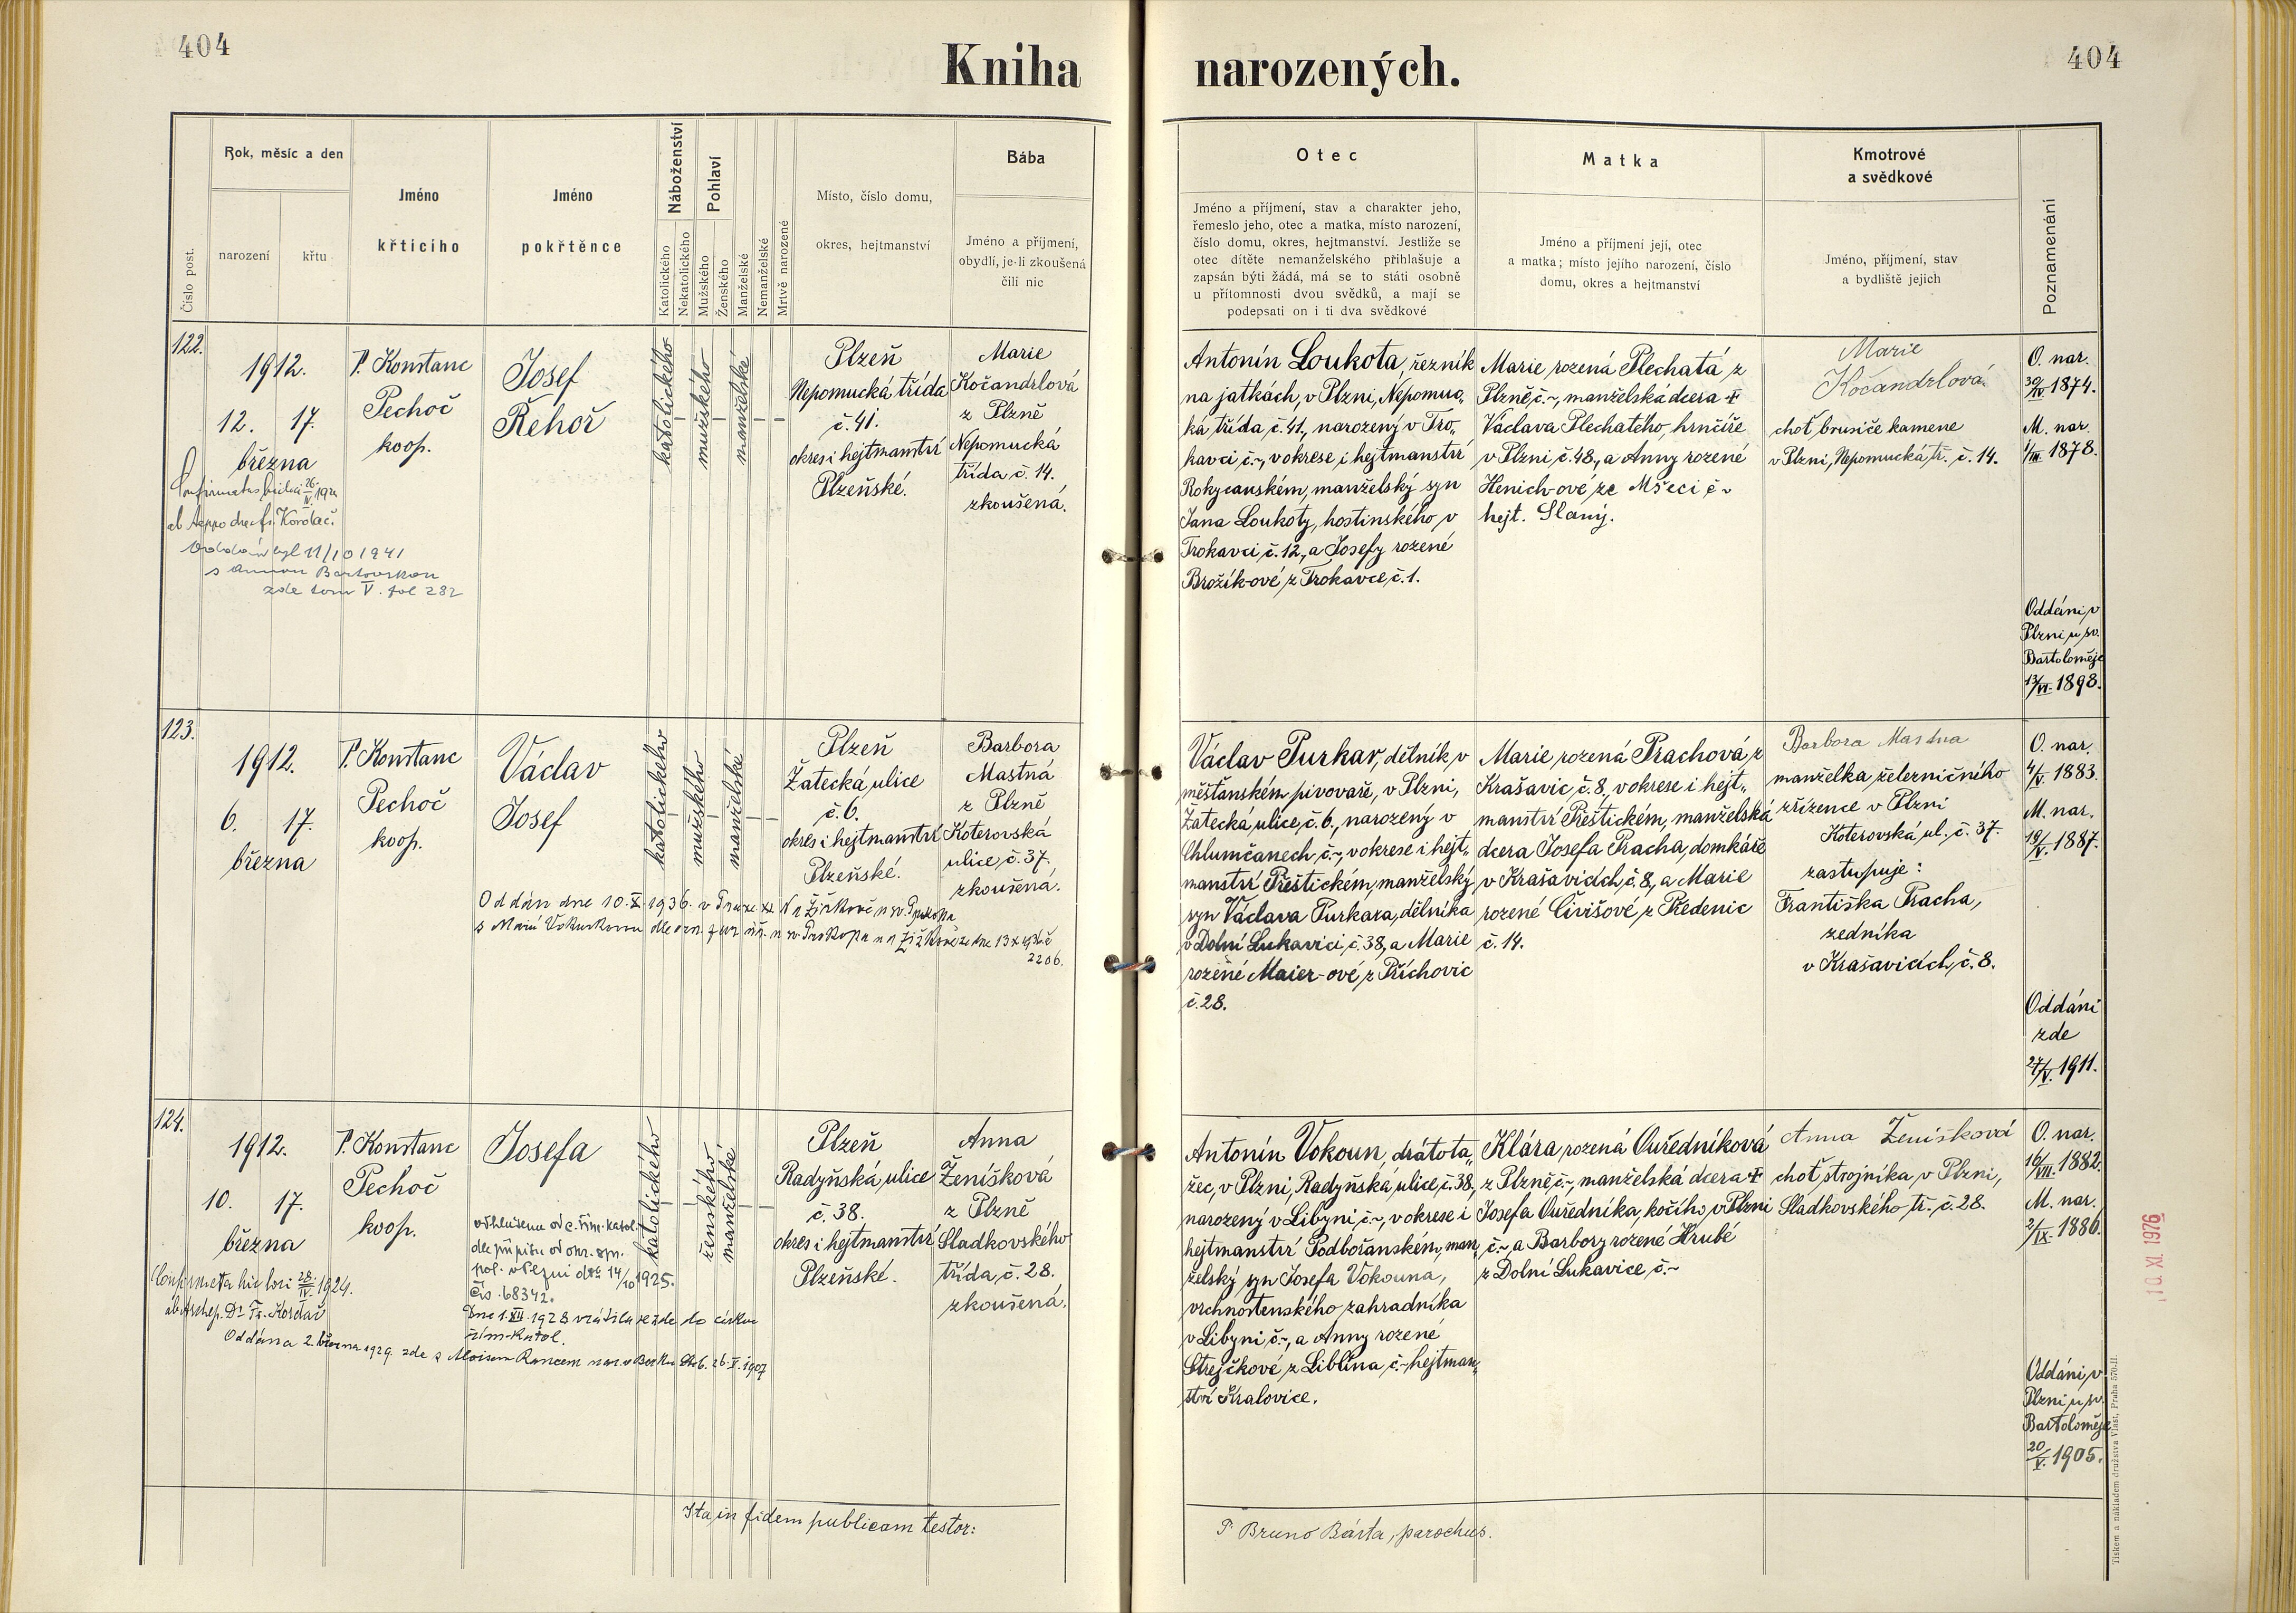 404
Kniha narozených.
404
Číslo post.
Rok, měsíc a den
narození
křtu
Jméno
křticího
Jméno
pokřtěnce
Náboženství
Katolického
Nekatolického
Pohlaví
Mužského
Ženského
Manželské
Nemanželské
Mrtvě narozené
Místo, číslo domu,
okres, hejtmanství
Bába
Jméno a příjmení,
obydlí, je-li zkoušená
čili nic
Otec
Jméno a příjmení, stav a charakter jeho,
řemeslo jeho, otec a matka, místo narození,
číslo domu, okres, hejtmanství. Jestliže se
otec dítěte nemanželského přihlašuje a
zapsán býti žádá, má se to státi osobně
u přítomnosti dvou svědků, a mají se
podepsati on i ti dva svědkové
Matka
Jméno a příjmení její, otec
a matka; místo jejího narození, číslo
domu, okres a hejtmanství
Kmotrové
a svědkové
Jméno, příjmení, stav
a bydliště jejich
Poznamenání
122.
1912.
12. 17.
března
Confirmatus 26/V. 1921
Kordač.
Oddán byl 11/10 1941
s Annou Bartovskou
zde tom V. fol 282
P. Konstanc
Pechoč
koop.
Josef
Řehoř
katolického
mužského
manželské
Plzeň
Nepomucká třída
č. 41.
okres i hejtmanství
Plzeňské.
Marie
Kočandrlová
z Plzně
Nepomucká
třída č. 14.
zkoušená.
Antonín Loukota, řezník
na jatkách, v Plzni, Nepomuc„
ká třída č. 41., narozený v Tro„
kavci č.~, v okrese i hejtmanství
Rokycanském, manželský syn
Jana Loukoty, hostinského v
Trokavci č. 12., a Josefy rozené
Brožík-ové z Trokavce, č. 1.
Marie rozená Plechatá z
Plzně, č.~, manželská dcera +
Václava Plechatého, hrnčíře
v Plzni č. 48., a Anny rozené
Henich-ové ze Mšeci č~
hejt. Slaný.
Marie
Kočandrlová
choť brusiče kamene
v Plzni, Nepomucká tř. č. 14.
O. nar.
30/IV. 1874.
M. nar.
1/III. 1878.
Oddáni v
Plzni u sv.
Bartoloměje
13/VI. 1898.
123.
1912.
6. 17.
března
P. Konstanc
Pechoč
koop.
Václav
Josef
katolického
mužského
manželské
Plzeň
Žatecká ulice
č. 6.
okres i hejtmanství
Plzeňské.
Barbora
Mastná
z Plzně
Koterovská
ulice č. 37.
zkoušená.
Oddán dne 10.X. 1936. v Praze XI N a Žižkově u sv. Prokopa
s Marií Vokurkovou dle ozn. far. úř. u sv. Prokopa na Žižkově ze dne 13 X 1936 č
2206.
Václav Purkar, dělník v
měšťanském pivovaře, v Plzni,
Žatecká ulice, č. 6., narozený v
Chlumčanech, č.~, v okrese i hejt„
manství Přeštickém, manželský
syn Václava Purkara, dělníka
v Dolní Lukavici, č. 38, a Marie
rozené Maier-ové, z Příchovic
č. 28.
Marie rozená Prachová, z
Krašavic, č. 8., v okrese i hejt„
manství Přeštickém, manželská
dcera Josefa Pracha, domkáře
v Krašavicích, č. 8., a Marie
rozené Čivišové, z Předenic
č. 14.
Barbora Mastna
manželka železničního
zřízence v Plzni
Koterovská ul., č. 37.
zastupuje:
Františka Pracha,
zedníka
v Krašavicích, č. 8.
O. nar.
4/V. 1883.
M. nar.
19/V. 1887.
Oddáni
zde
27/V. 1911.
124.
1912.
10. 17.
března
Confirmata hic loci 28/IV. 1924.
ab Archiep. Dr Fr. Kordač
P. Konstanc
Pechoč
koop.
Josefa
katolického
ženského
manželské
odhlášena od c. řím. katol.
dle přípisu od okr. spr.
pol. v Plzni dto 14/10 1925.
Čís. 68342.
Dne 1.XII. 1928 vrátila se zde do církve
řím-katol.
Oddána 2. března 1929. zde s Aloisem Rancem nar. v 26.V. 1907
Plzeň
Radyňská ulice
č. 38.
okres i hejtmanství
Plzeňské.
Anna
Ženíšková
z Plzně
Sladkovského
třída, č. 28.
zkoušená.
Antonín Vokoun, drátota„
žec, v Plzni, Radyňská ulice, č. 38.,
narozený v Libyni, č.~, v okrese i
hejtmanství Podbořanském, man„
želský syn Josefa Vokouna,
vrchnostenského zahradníka
v Libyni č.~, a Anny rozené
Strejčkové z Liblína, č.~ hejtman„
ství Kralovice.
Klára rozená Ouředníková
z Plzně, č.~, manželská dcera +
Josefa Ouředníka, kočího, v Plzni
č.~, a Barbory rozené Hrubé
z Dolní Lukavice, č.~
Anna Ženíšková
choť strojníka, v Plzni,
Sladkovského tř., č. 28.
O. nar.
16/VII. 1882.
M. nar.
2/IX. 1886.
Oddáni, v
Plzni, u sv.
Bartoloměje
20/V. 1905.
10 XI. 1976
Ita, in fidem publicam testor:
P. Bruno Bárta, parochus.
Tiskem a nákladem družstva Vlast, Praha 570-II.